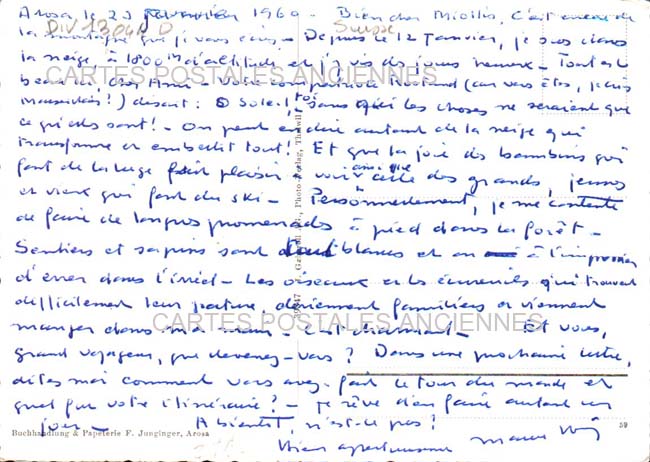 Arosa le 23 février 1960 - Bien cher Miollis, C'est encore de
DIV 13040 D
Suisse
la montagne que je vous écris - Depuis le 12 Janvier, je suis dans
la neige, à 1800 m d'altitude et j'y vis des jours heureux - Tout est
beau ici, cher Ami - Votre compatriote Rostand (car vous êtes, je suis
CARTES POSTALES ANCIENNES
Marseillais!) disait: O Soleil, toi sans qui les choses ne seraient que
ce qu'elles sont! - On peut en dire autant de la neige qui
transforme et embellit tout! Et que la joie des bambins qui
font de la luge fait plaisir à voir ainsi que celle des grands, jeunes
et vieux qui font du ski - Personnellement, je me contente
de faire de longues promenades à pied dans la forêt -
Sentiers et sapins sont blancs et on à l'impression
d'errer dans l'irréel - Les oiseaux et les écureuils qui trouvent
difficilement leur pature, deviennent familiers et viennent
manger dans ma main - C'est charmant - Et vous,
CARTES POSTALES ANCIENNES
grand voyageur, que devenez-vous? Dans une prochaine lettre,
dites moi comment vous avez fait le tour du monde et
quel fut votre itinéraire? - Je rêve d'en faire autant un
jour - A bientôt, n'est-ce pas?
Buchhandlung & Papeterie F. Junginger, Arosa
59
Bien affectueusement
Photo-Verlag, Thalwil